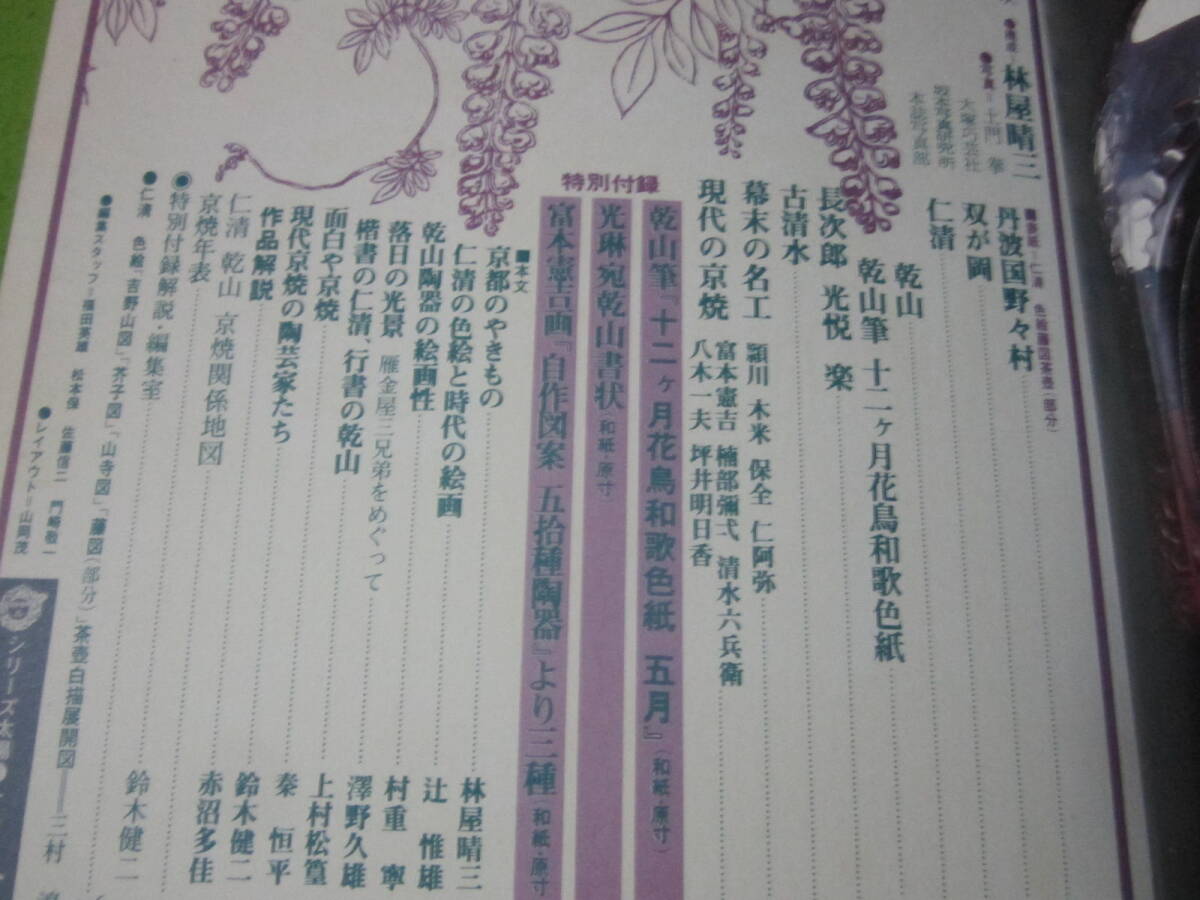 林屋晴三
●写真=土門 拳
大塚巧芸社
坂本写真研究所
本誌写真部
■表紙=仁清 色絵藤図茶壺(部分)
丹波国野々村
双が岡
仁清
乾山
乾山筆 十二ヶ月花鳥和歌色紙
長次郎 光悦 楽
古清水
幕末の名工 頴川 木米 保全 仁阿弥
現代の京焼 富本憲吉 楠部彌弌 清水六兵衛
八木一夫 坪井明日香
特別付録
乾山筆『十二ヶ月花鳥和歌色紙 五月』(和紙・原寸)
光琳宛乾山書状(和紙・原寸)
富本憲吉画『自作図案 五拾種陶器』より三種(和紙・原寸
■本文
京都のやきもの 林屋晴三
仁清の色絵と時代の絵画 辻 惟雄
乾山陶器の絵画性 村重 寧
落日の光景 雁金屋三兄弟をめぐって 澤野久雄
楷書の仁清、行書の乾山 上村松篁
面白や京焼 秦 恒平
現代京焼の陶芸家たち 鈴木健二
作品解説 赤沼多佳
仁清 乾山 京焼関係地図
京焼年表 鈴木健二
◉特別付録解説・編集室
●仁清 色絵「吉野山図」「芥子図」「山寺図」「藤図(部分)」茶壺白描展開図——三村
●編集スタッフ=福田英雄 松本保 佐藤信二 門崎敬一
●レイアウト=山岡茂
シリーズ太陽